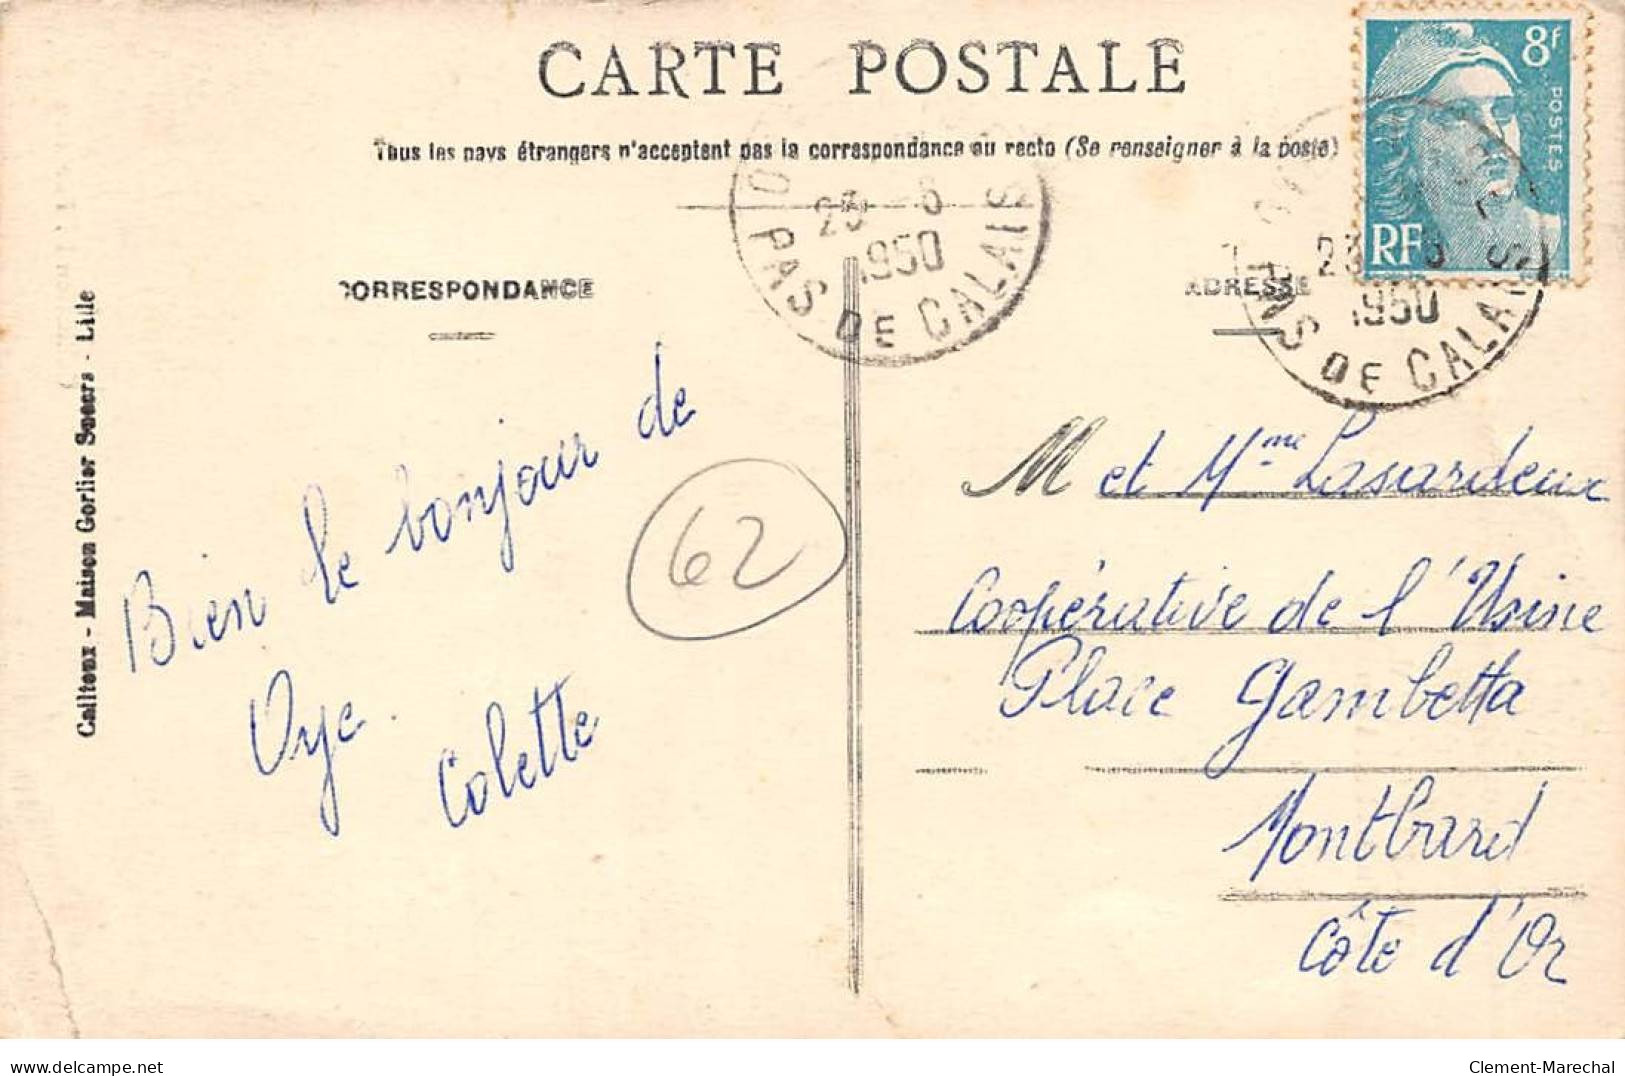 CARTE POSTALE
Tous les pays étrangers n'acceptent pas la correspondance au recto (Se renseigner à la poste)
8f
POSTES
RF
O
23 - 8
1950
PAS DE CALAIS
23 8
1950
PAS DE CALAIS
CORRESPONDANCE
ADRESSE
Cailteux - Maison Gorlier Soeurs - Lille
Bien le bonjour de
Oye.
Colette
62
M et Mme Lasardeux
Coopérative de l'Usine
Place Gambetta
Montbard
Côte d'Or
delcampe.net
Clement-Marechal